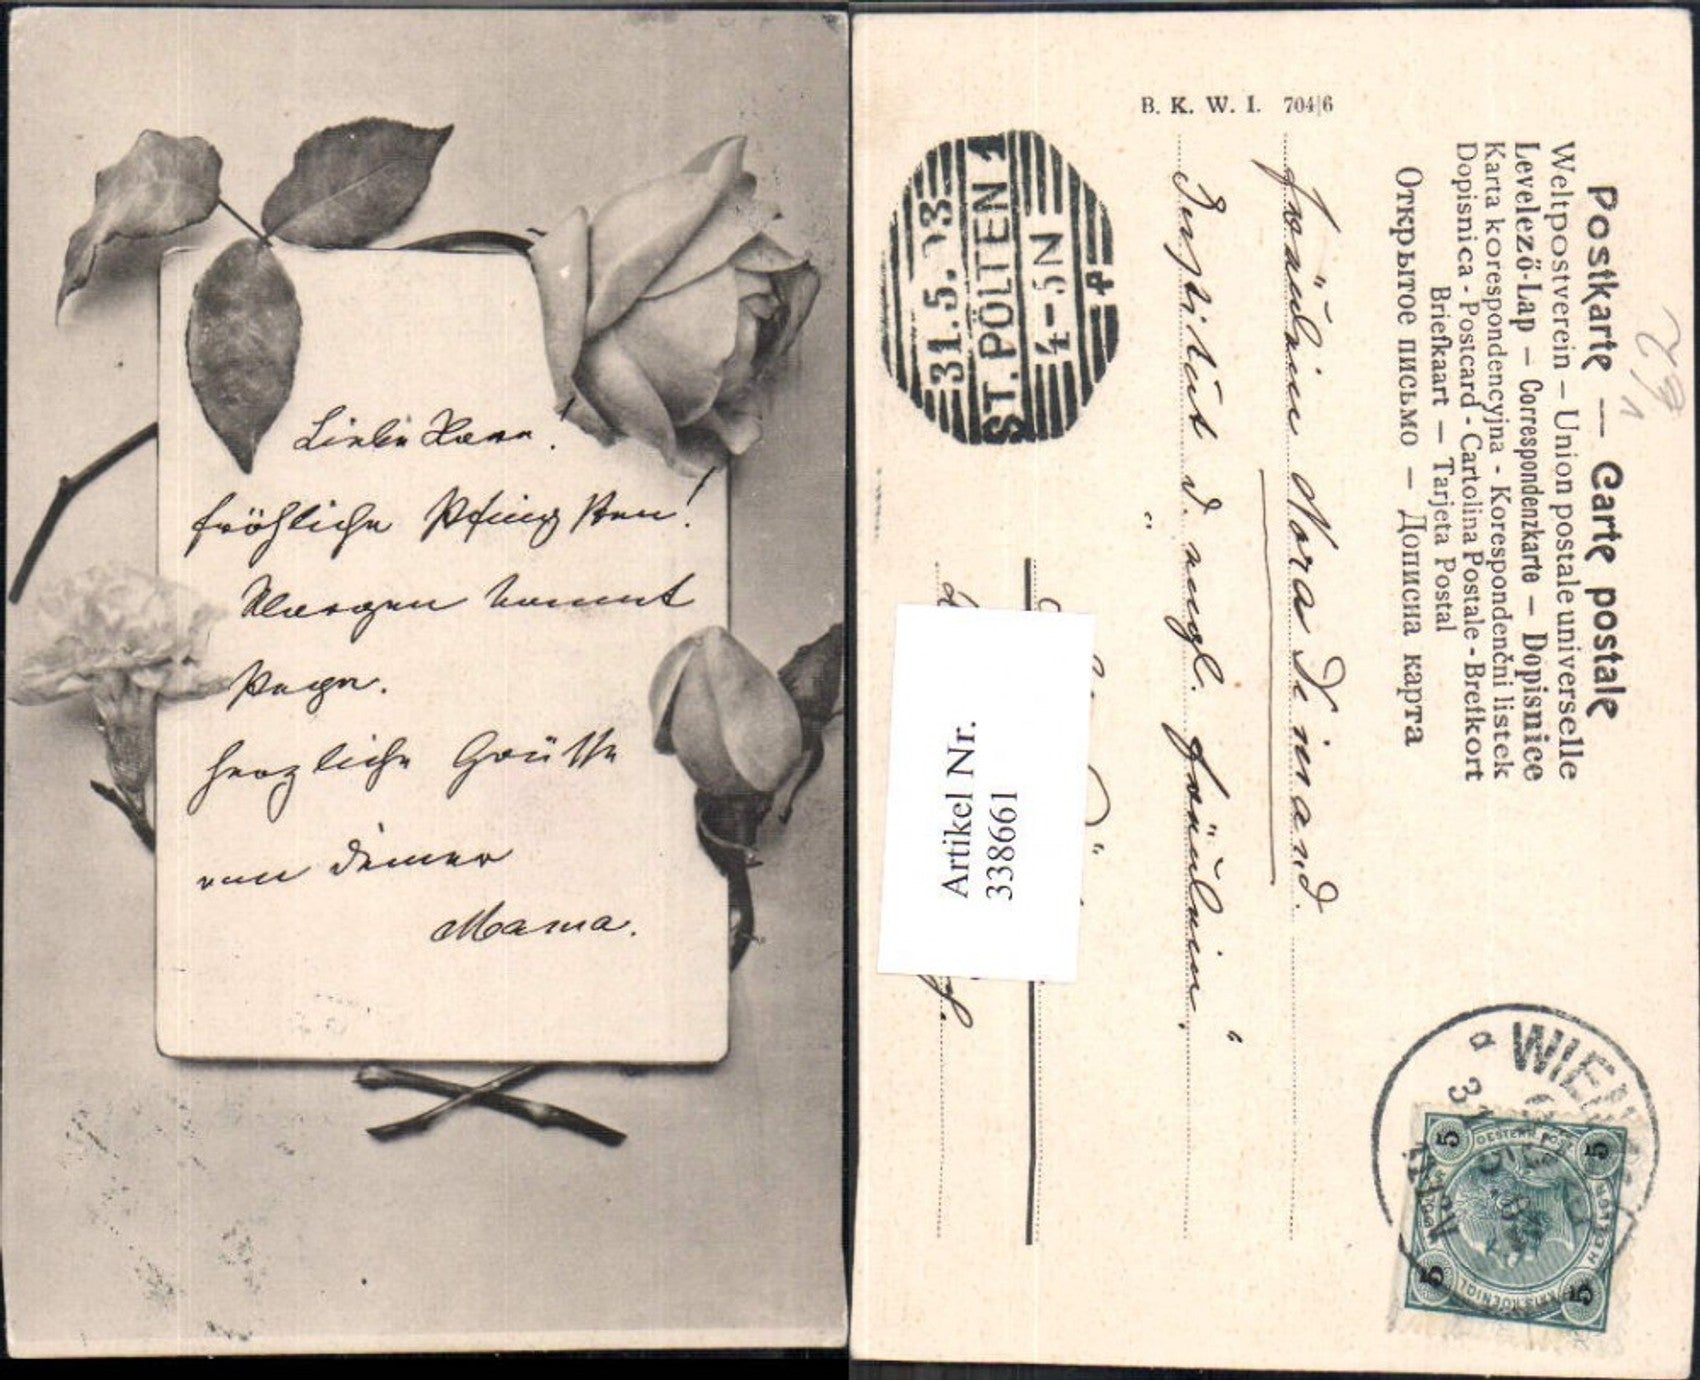 Liebe Nora!
fröhliche Pfingsten!
Morgen kommt
Papa.
herzliche Grüsse
von Deiner
Mama.
B. K. W. I. 704/6
Postkarte — Carte postale
Weltpostverein – Union postale universelle
Levelező-Lap – Correspondenzkarte – Dopisnice
Karta korespondencyjna - Korespondenční listek
Dopisnica - Postcard - Cartolina Postale - Brefkort
Briefkaart — Tarjeta Postal
Открытое письмо — Дописна карта
Fräulein Nora Dinand.
Institut d. engl. Fräulein.
ST. PÖLTEN 1
31.5.
4-5N
Artikel Nr.
3388661
WIEN
5
5
5
5